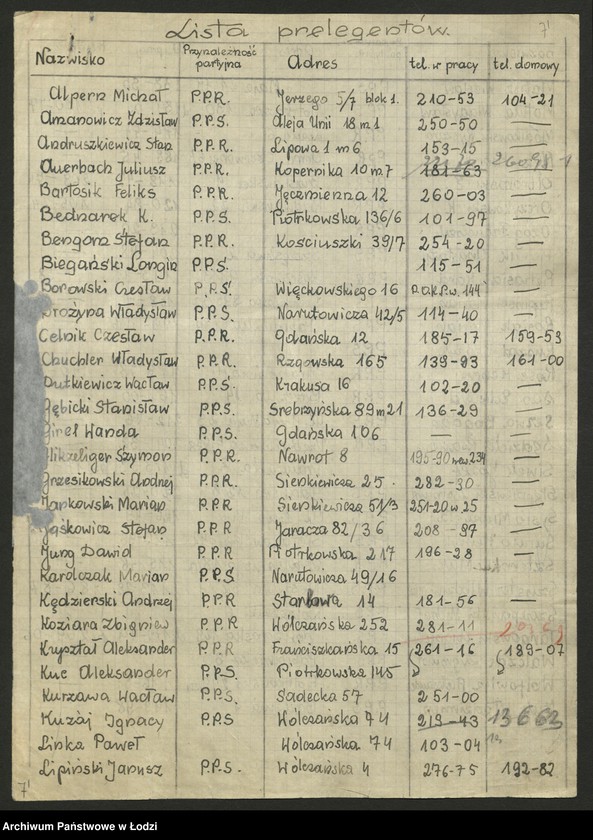 Lista prelegentów.
7'
Nazwisko Przynależność partyjna Adres tel. w pracy tel. domowy
Alpern Michał P.P.R. Jerzego 5/7 blok 1. 210-53 104-21
Amanowicz Zdzisław P.P.S. Aleja Unii 18 m 1 250-50 —
Andruszkiewicz Stan P.P.R. Lipowa 1 m 6 153-15 —
Auerbach Juliusz P.P.R. Kopernika 10 m 7 181-63
Bartosik Feliks P.P.R. Jęczmienna 12 260-03 —
Bednarek K. P.P.S. Piotrkowska 136/6 101-97 —
Bengom Stefan P.P.R. Kościuszki 39/7 254-20 —
Biegański Longin P.P.S. 115-51 —
Borowski Czesław P.P.S. Więckowskiego 16 w. 144 —
Drożyna Władysław P.P.S. Narutowicza 42/5 114-40 —
Celnik Czesław P.P.R. Gdańska 12 185-17 159-53
Chuchler Władysław P.P.R. Rzgowska 165 139-93 161-00
Dutkiewicz Wacław P.P.S. Krakusa 16 102-20 —
Gębicki Stanisław P.P.S. Srebrzyńska 89 m 21 136-29 —
Wanda P.P.S. Gdańska 106 — —
Szymon P.P.R. Nawrot 8 195-90 wew. 234 —
Grzesikowski P.P.R. Sienkiewicza 25. 282-30 —
Jankowski Marian P.P.R Sienkiewicza 51/3 251-20 w 25 —
Jaśkowicz Stefan P.P.R Jaracza 82/36 208-97 —
Jung Dawid P.P.R Piotrkowska 217 196-28 —
Karolczak Marian P.P.S Narutowicza 49/16
Kędzierski Andrzej P.P.R 14 181-56 —
Koziara Zbigniew P.P.R Wólczańska 252 281-11
Kryształ Aleksander P.P.R Franciszkańska 15 261-16 189-07
Kuc Aleksander P.P.S. Piotrkowska 145
Kurzawa Wacław P.P.S. Sadecka 57 251-00
Kuzaj Ignacy P.P.S Wólczańska 74 219-43 13662
Linka Paweł Wólczańska 74 103-04
Lipiński Janusz P.P.S. Wólczańska 4 276-75 192-82
7'
Archiwum Państwowe w Łodzi